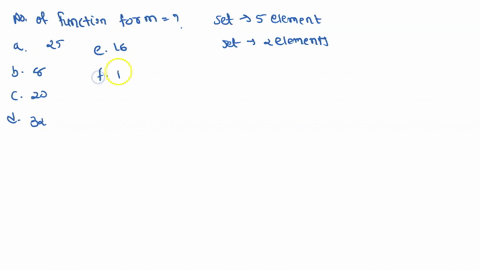 No. of function form = ?
set → 5 element
set → 2 elements
a. 25
e. 16
b. 8
f. 1
c. 20
d. 32